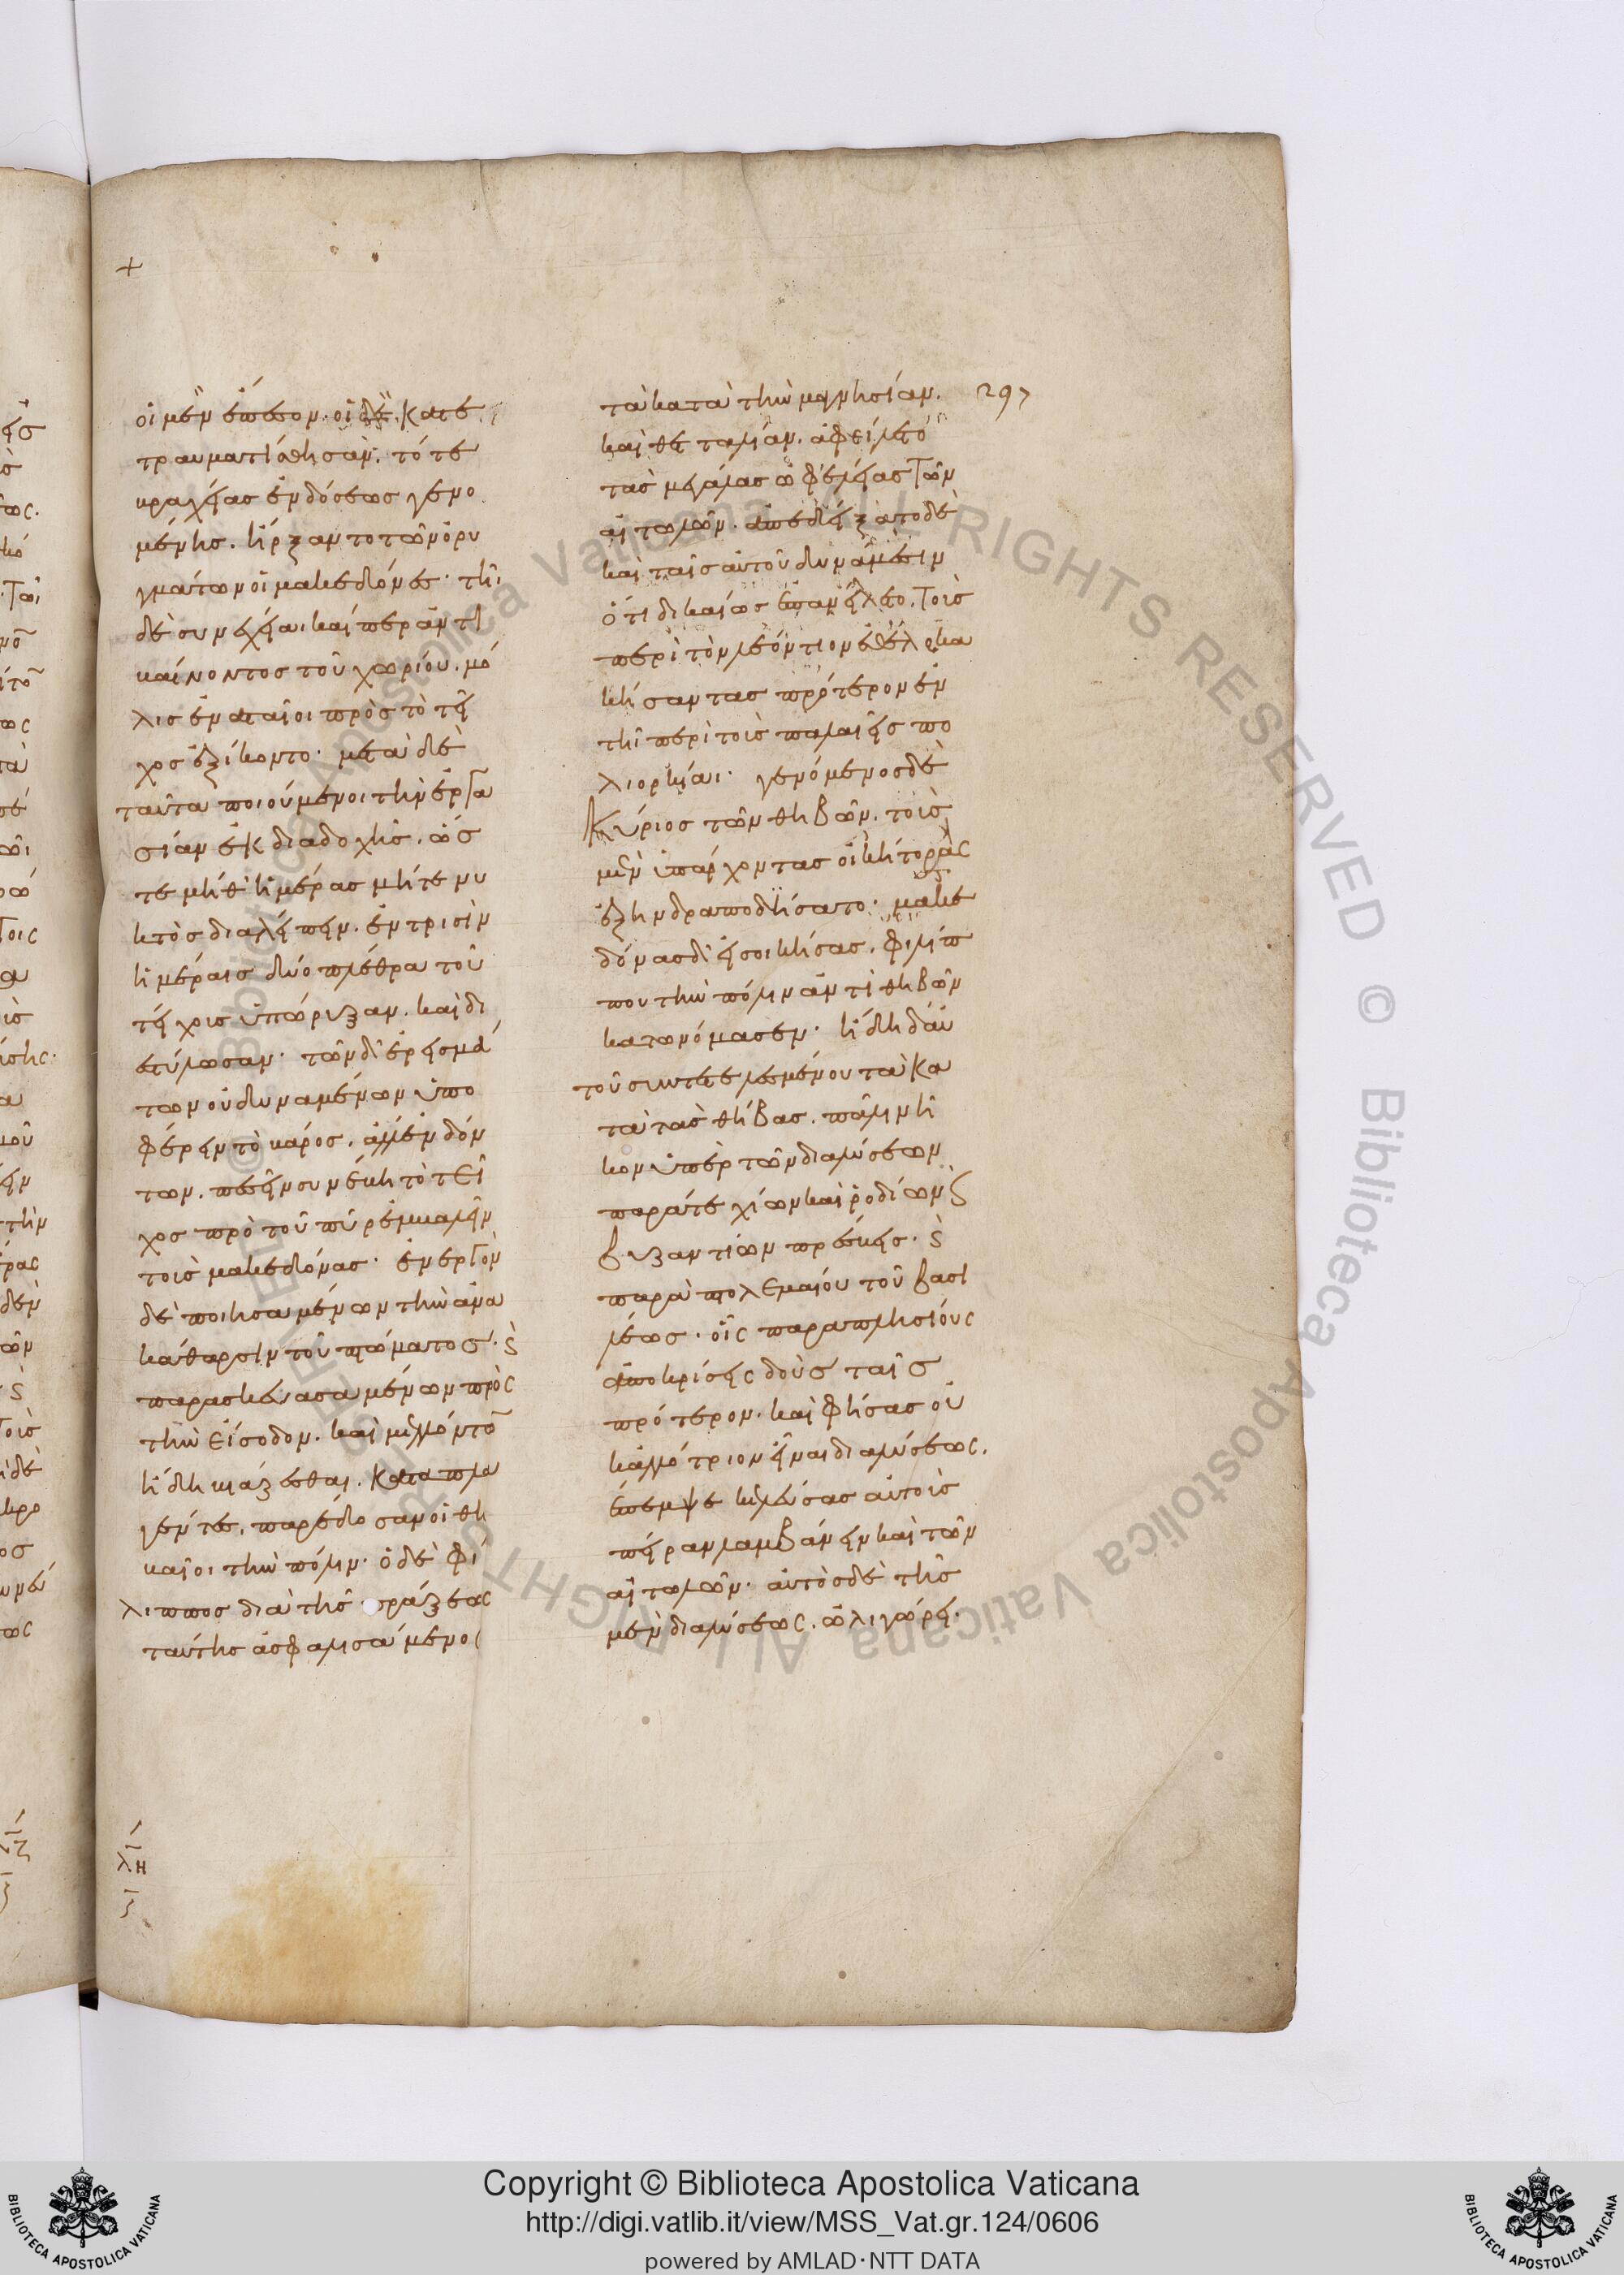 +
οἱ μὲν ἔπεσον. οἱ δὲ. κατε
τραυματίσθησαν. τότε
βραχείας ἐνδόσεως γενο
μένης. ἤρξαντο τῶν ὀρυ
γμάτων οἱ μακεδόνες· τῆι
δὲ συνεχείαι καίπερ ἀντι
βαίνοντος τοῦ χωρίου. μό
λις ἐναταῖοι πρὸς τὸ τεῖ
χος ἐξίκοντο· μετὰ δὲ
ταῦτα ποιούμενοι τὴν ἐργα
σίαν ἐκ διαδοχῆς. ὥσ
τε μήθ' ἡμέρας μήτε νυ
κτὸς διαλείπειν. ἐν τρισὶν
ἡμέραις δύο πλέθρα τοῦ
τείχους ὑπώρυξαν. καὶ δι
εστύλωσαν· τῶν δ' ἐρεισμά
των οὐ δυναμένων ὑπο
φέρειν τὸ βάρος. ἀλλ' ἐνδόν
των. πεσεῖν συνέβη τὸ τεῖ
χος πρὸ τοῦ πῦρ ἐμβαλεῖν
τοὺς μακεδόνας· ἐνεργὸν
δὲ ποιησαμένων τὴν ἀνα
κάθαρσιν τοῦ πτώματος. ϗ
παρασκευασαμένων πρὸς
τὴν εἴσοδον. καὶ μελλόντων
ἤδη βιάζεσθαι. καταπλα
γέντες. παρέδοσαν οἱ θη
βαῖοι τὴν πόλιν. ὁ δὲ φί
λιππος διὰ τῆς πράξεως
ταύτης ἀσφαλισάμενος
λη
τὰ κατὰ τὴν μαγνησίαν. 297
καὶ θετταλίαν. ἀφείλετο
τὰς μεγάλας ὠφελείας τῶν
αἰτωλῶν. ἀπεδείξατο δὲ
καὶ ταῖς αὐτοῦ δυνάμεσιν
ὅτι δικαίως ἐπανείλετο. τοὺς
περὶ τὸν λεόντιον ἐθελοκα
κήσαντας πρότερον ἐν
τῆι περὶ τοὺς παλαιεῖς πο
λιορκίαι· γενόμενος δὲ
κύριος τῶν θηβῶν. τοὺς
μὲν ὑπάρχοντας οἰκήτορας
ἐξηνδραποδίσατο· μακε
δόνας δ' εἰσοικήσας. φιλίπ
που τὴν πόλιν ἀντὶ θηβῶν
κατωνόμασεν· ἤδη δ' αὐ
τοῦ συντετελεσμένου τὰ κα
τὰ τὰς θήβας. πάλιν ἧ
κον ὑπὲρ τῶν διαλύσεων
παρά τε χίων καὶ ῥοδίων ϗ
βυζαντίων πρέσβεις. ϗ
παρὰ πτολεμαίου τοῦ βασι
λέως. οἷς παραπλησίους
ἀποκρίσεις δοὺς ταῖς
πρότερον. καὶ φήσας οὐ
κ ἀλλότριον εἶναι διαλύσεως.
ἔπεμψε κελεύσας αὐτοὺς
πεῖραν λαμβάνειν καὶ τῶν
αἰτωλῶν· αὐτὸς δὲ τῆς
μὲν διαλύσεως. ὠλιγώρει.
Copyright © Biblioteca Apostolica Vaticana
http://digi.vatlib.it/view/MSS_Vat.gr.124/0606
powered by AMLAD·NTT DATA
BIBLIOTECA APOSTOLICA VATICANA
BIBLIOTECA APOSTOLICA VATICANA